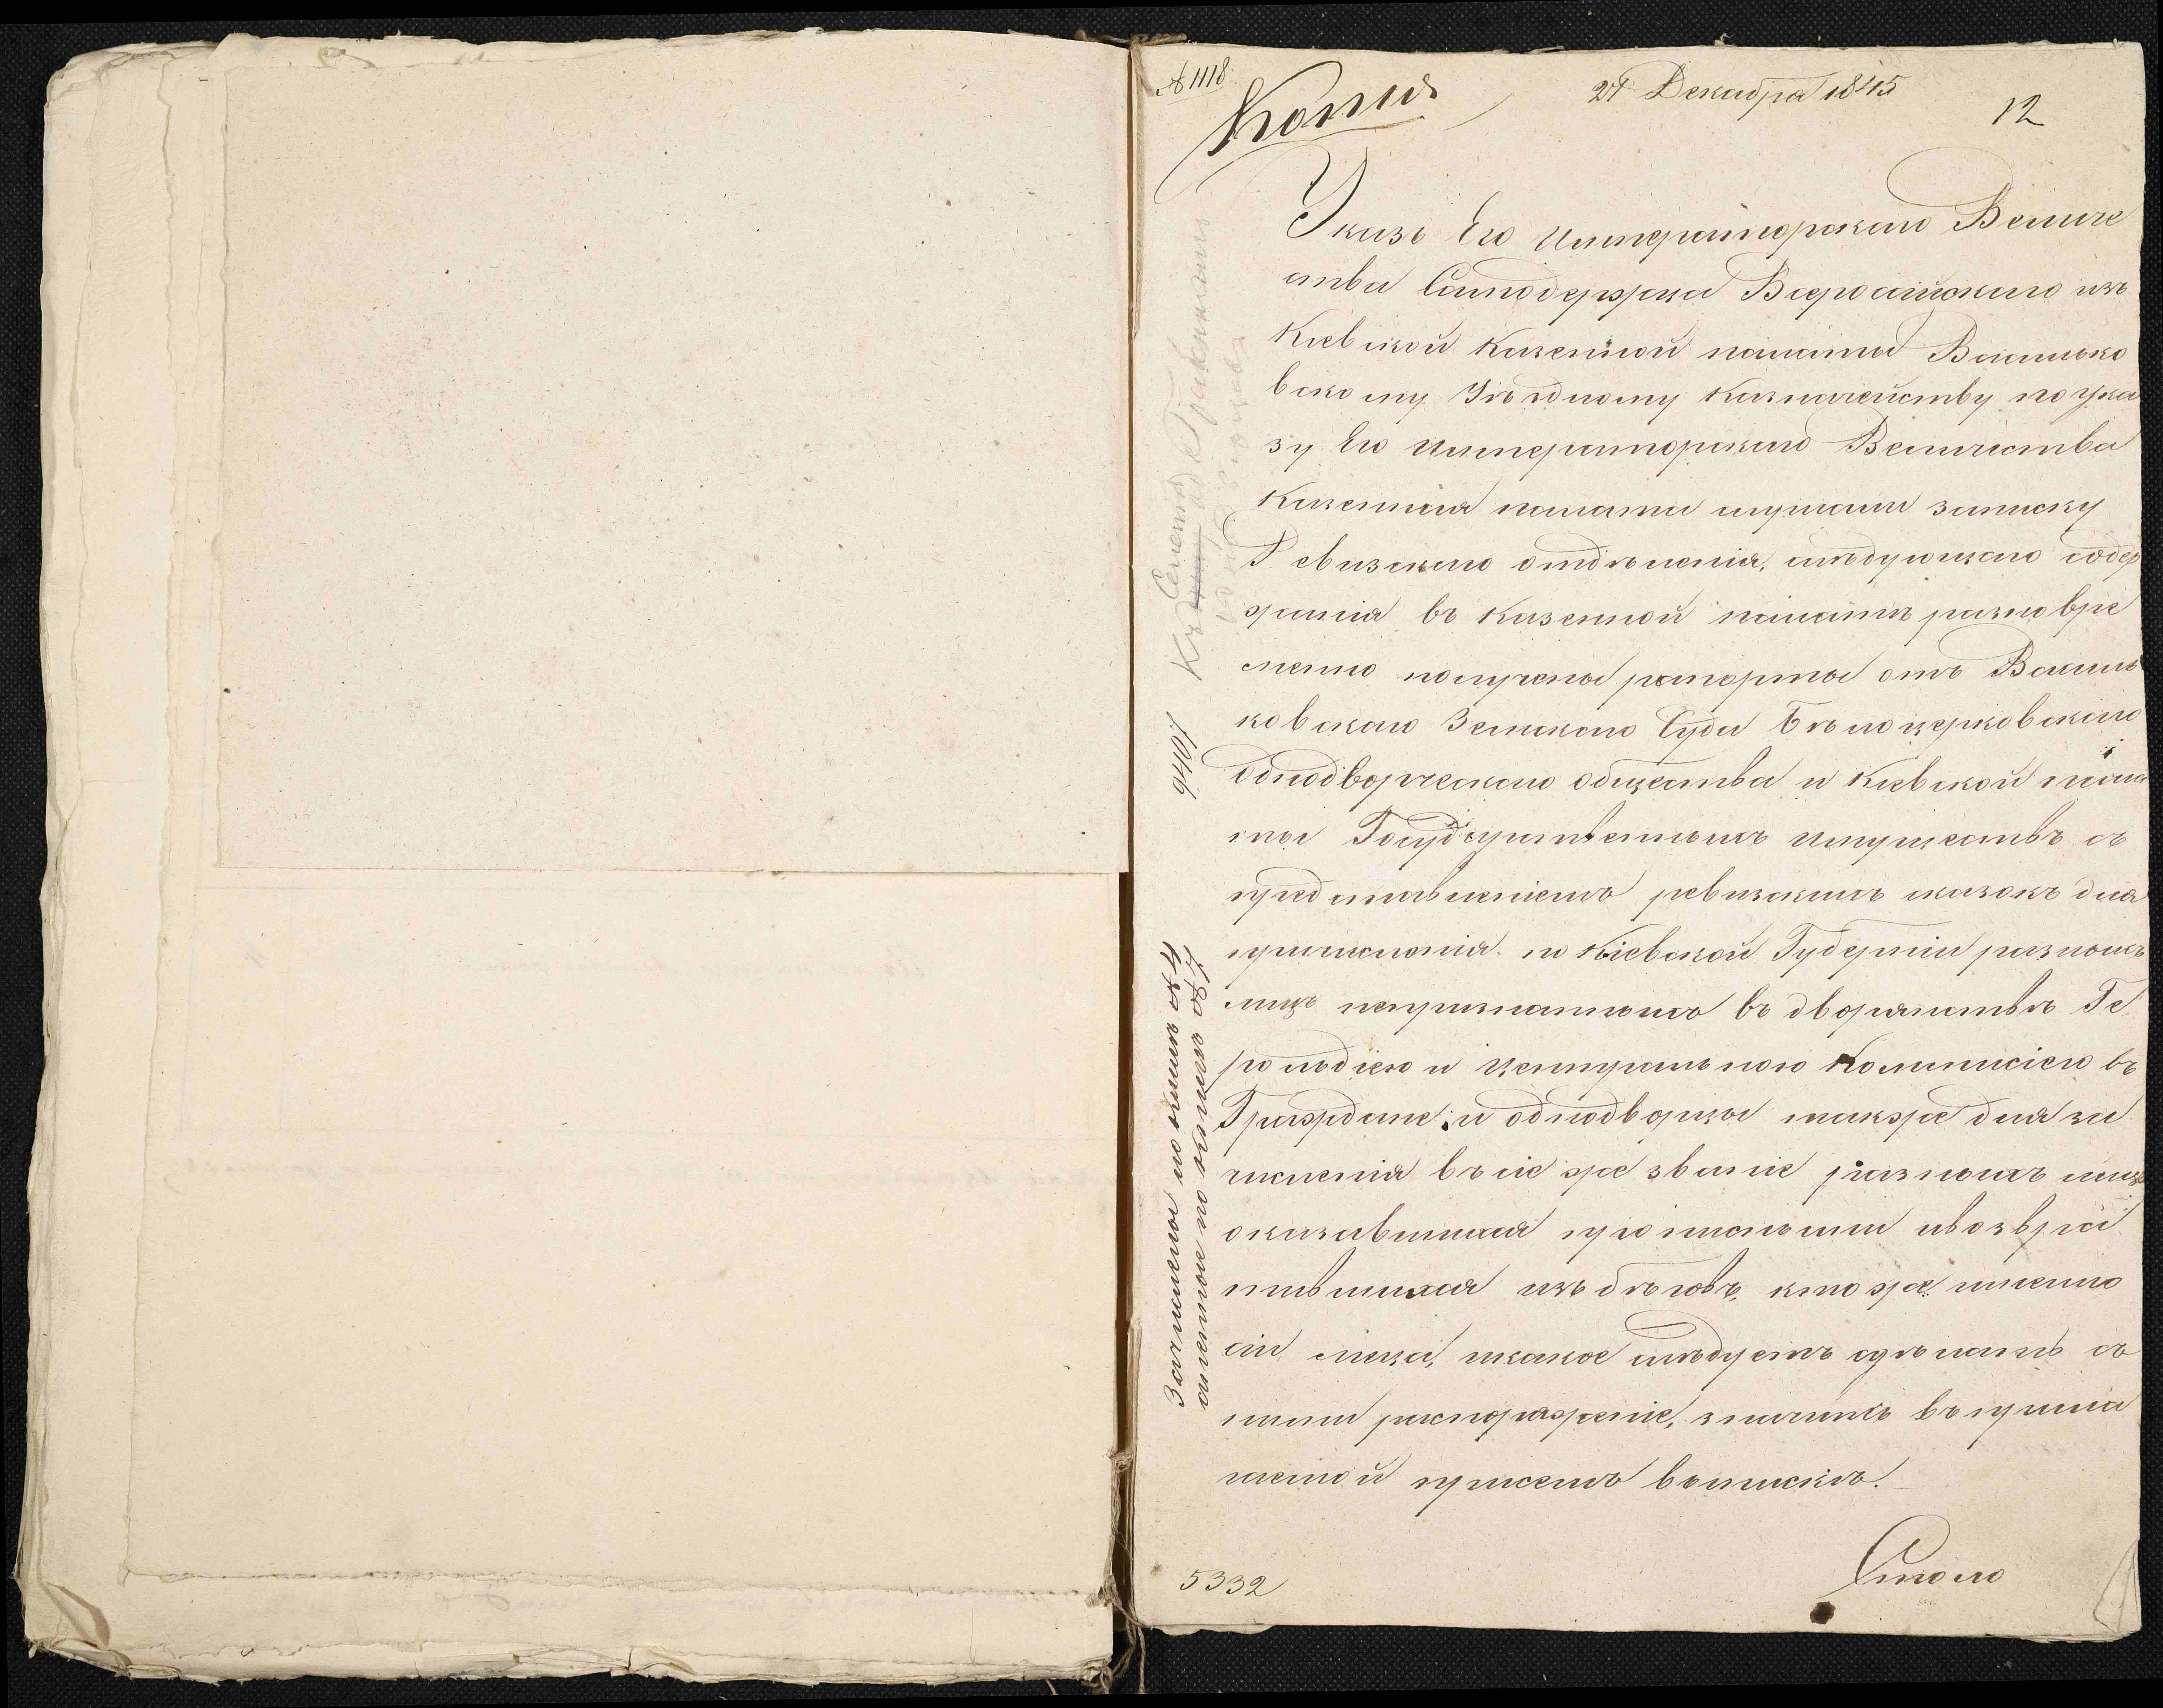 № 1118.
Копия
24 Декабря 1845
12
Указъ Его Императорскаго Величе
ства Самодержца Всероссийскаго изъ
Киевской Казенной палаты Василько
вскому Уѣздному Казначейству по ука
зу Его Императорскаго Величества
Казенная палата слушали записку
Ревизскаго отдѣленія, слѣдующаго содер
жанія въ Казенной палатѣ разновре
менно получены рапорты отъ Василь
ковскаго Земскаго Суда Бѣлоцерковскаго
однодворческаго общества и Киевской пала
ты Государственныхъ имуществъ съ
представленіемъ ревизскихъ сказокъ для
причисленія по Кіевской Губерніи разныхъ
лицъ непризнанныхъ въ дворянствѣ Ге
рольдіею и Центральною Коммисіею въ
Граждане и однодворцы также для за
численія въ сіе же званіе разныхъ лицъ
оказавшихся прописными и возвра
тившихся изъ бѣговъ, кто же именно
сіи лица, и какое слѣдуетъ сдѣлать съ
ними распоряженіе, значитъ въ прила
гаемой присемъ выпискѣ.
Столо
5332
9407
Къ Семены
Зачислены по книгѣ № 4